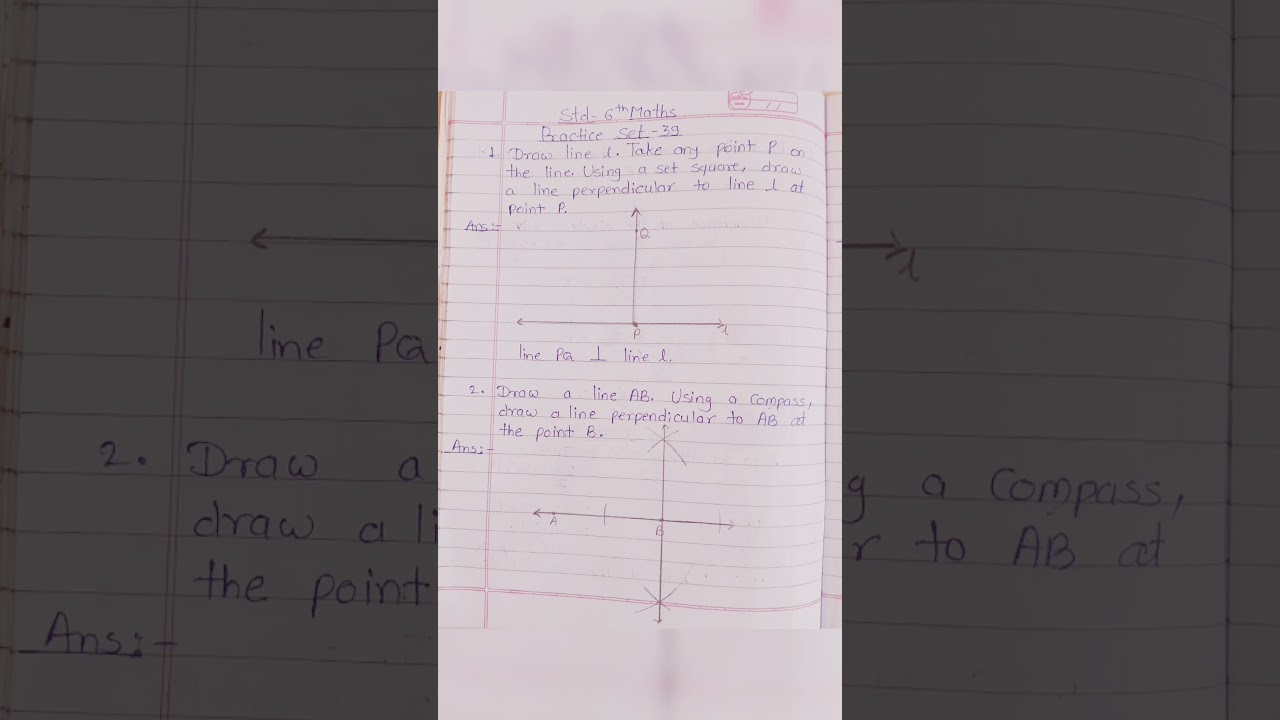 Std- 6th Maths
Practice Set-39
1. Draw line l. Take any point P on
the line. Using a set square, draw
a line perpendicular to line l at
point P.
Ans:-
Q
P
l
line PQ ⊥ line l.
2. Draw a line AB. Using a Compass,
draw a line perpendicular to AB at
the point B.
Ans:-
A
B
l
line PQ
2. Draw a
draw a li
the point
Ans:-
g a Compass,
r to AB at